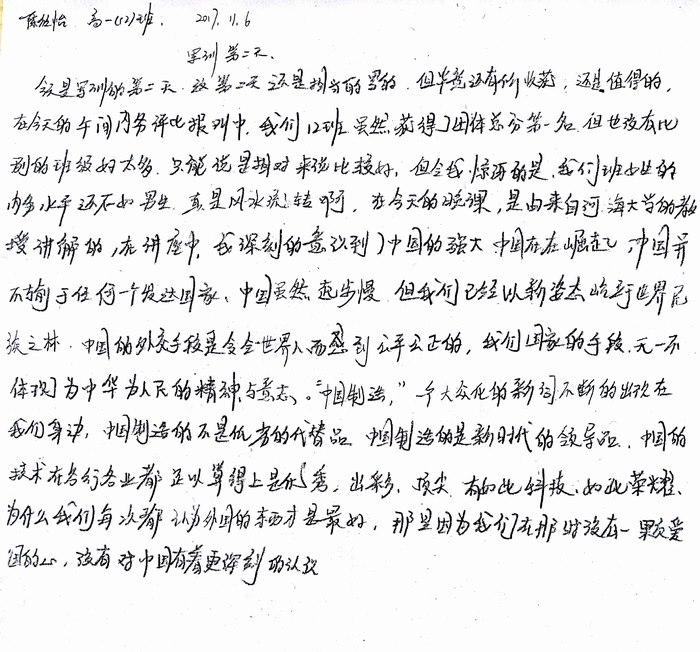 高一(12)班. 2017.11.6
军训第二天.
今天是军训的第二天.这第二天还是相当的累的.但毕竟还有所收获,还是值得的,
在今天的午间内务评比报列中,我们12班虽然获得了团体总分第一名但也没有比
别的班级好太多.只能说是相对来说比较好,但令我惊讶的是,我们班女生的
内务水平还不如男生.真是风水流转啊,在今天的晚课,是由来自河海大学的教
授讲解的,在讲座中,我深刻的意识到了中国的强大中国存在崛起,中国并
不输于任何一个发达国家、中国虽然起步慢但我们已经以新姿态临于世界民
族之林.中国的外交手段是令全世界人而感到公平公正的,我们国家的手段.无一不
体现为中华为人民的精神与意志。“中国制造,”一个大众化的新词不断的出现在
我们身边,中国制造的不是低劣的代替品.中国制造的是新时代的领导品.中国的
技术在各行各业都足以算得上是优秀,出彩,顶尖.有如此科技、如此荣耀.
为什么我们每次都认为外国的东西才是最好,那是因为我们在那时没有一颗爱
国的心,没有对中国有着更深刻的认识